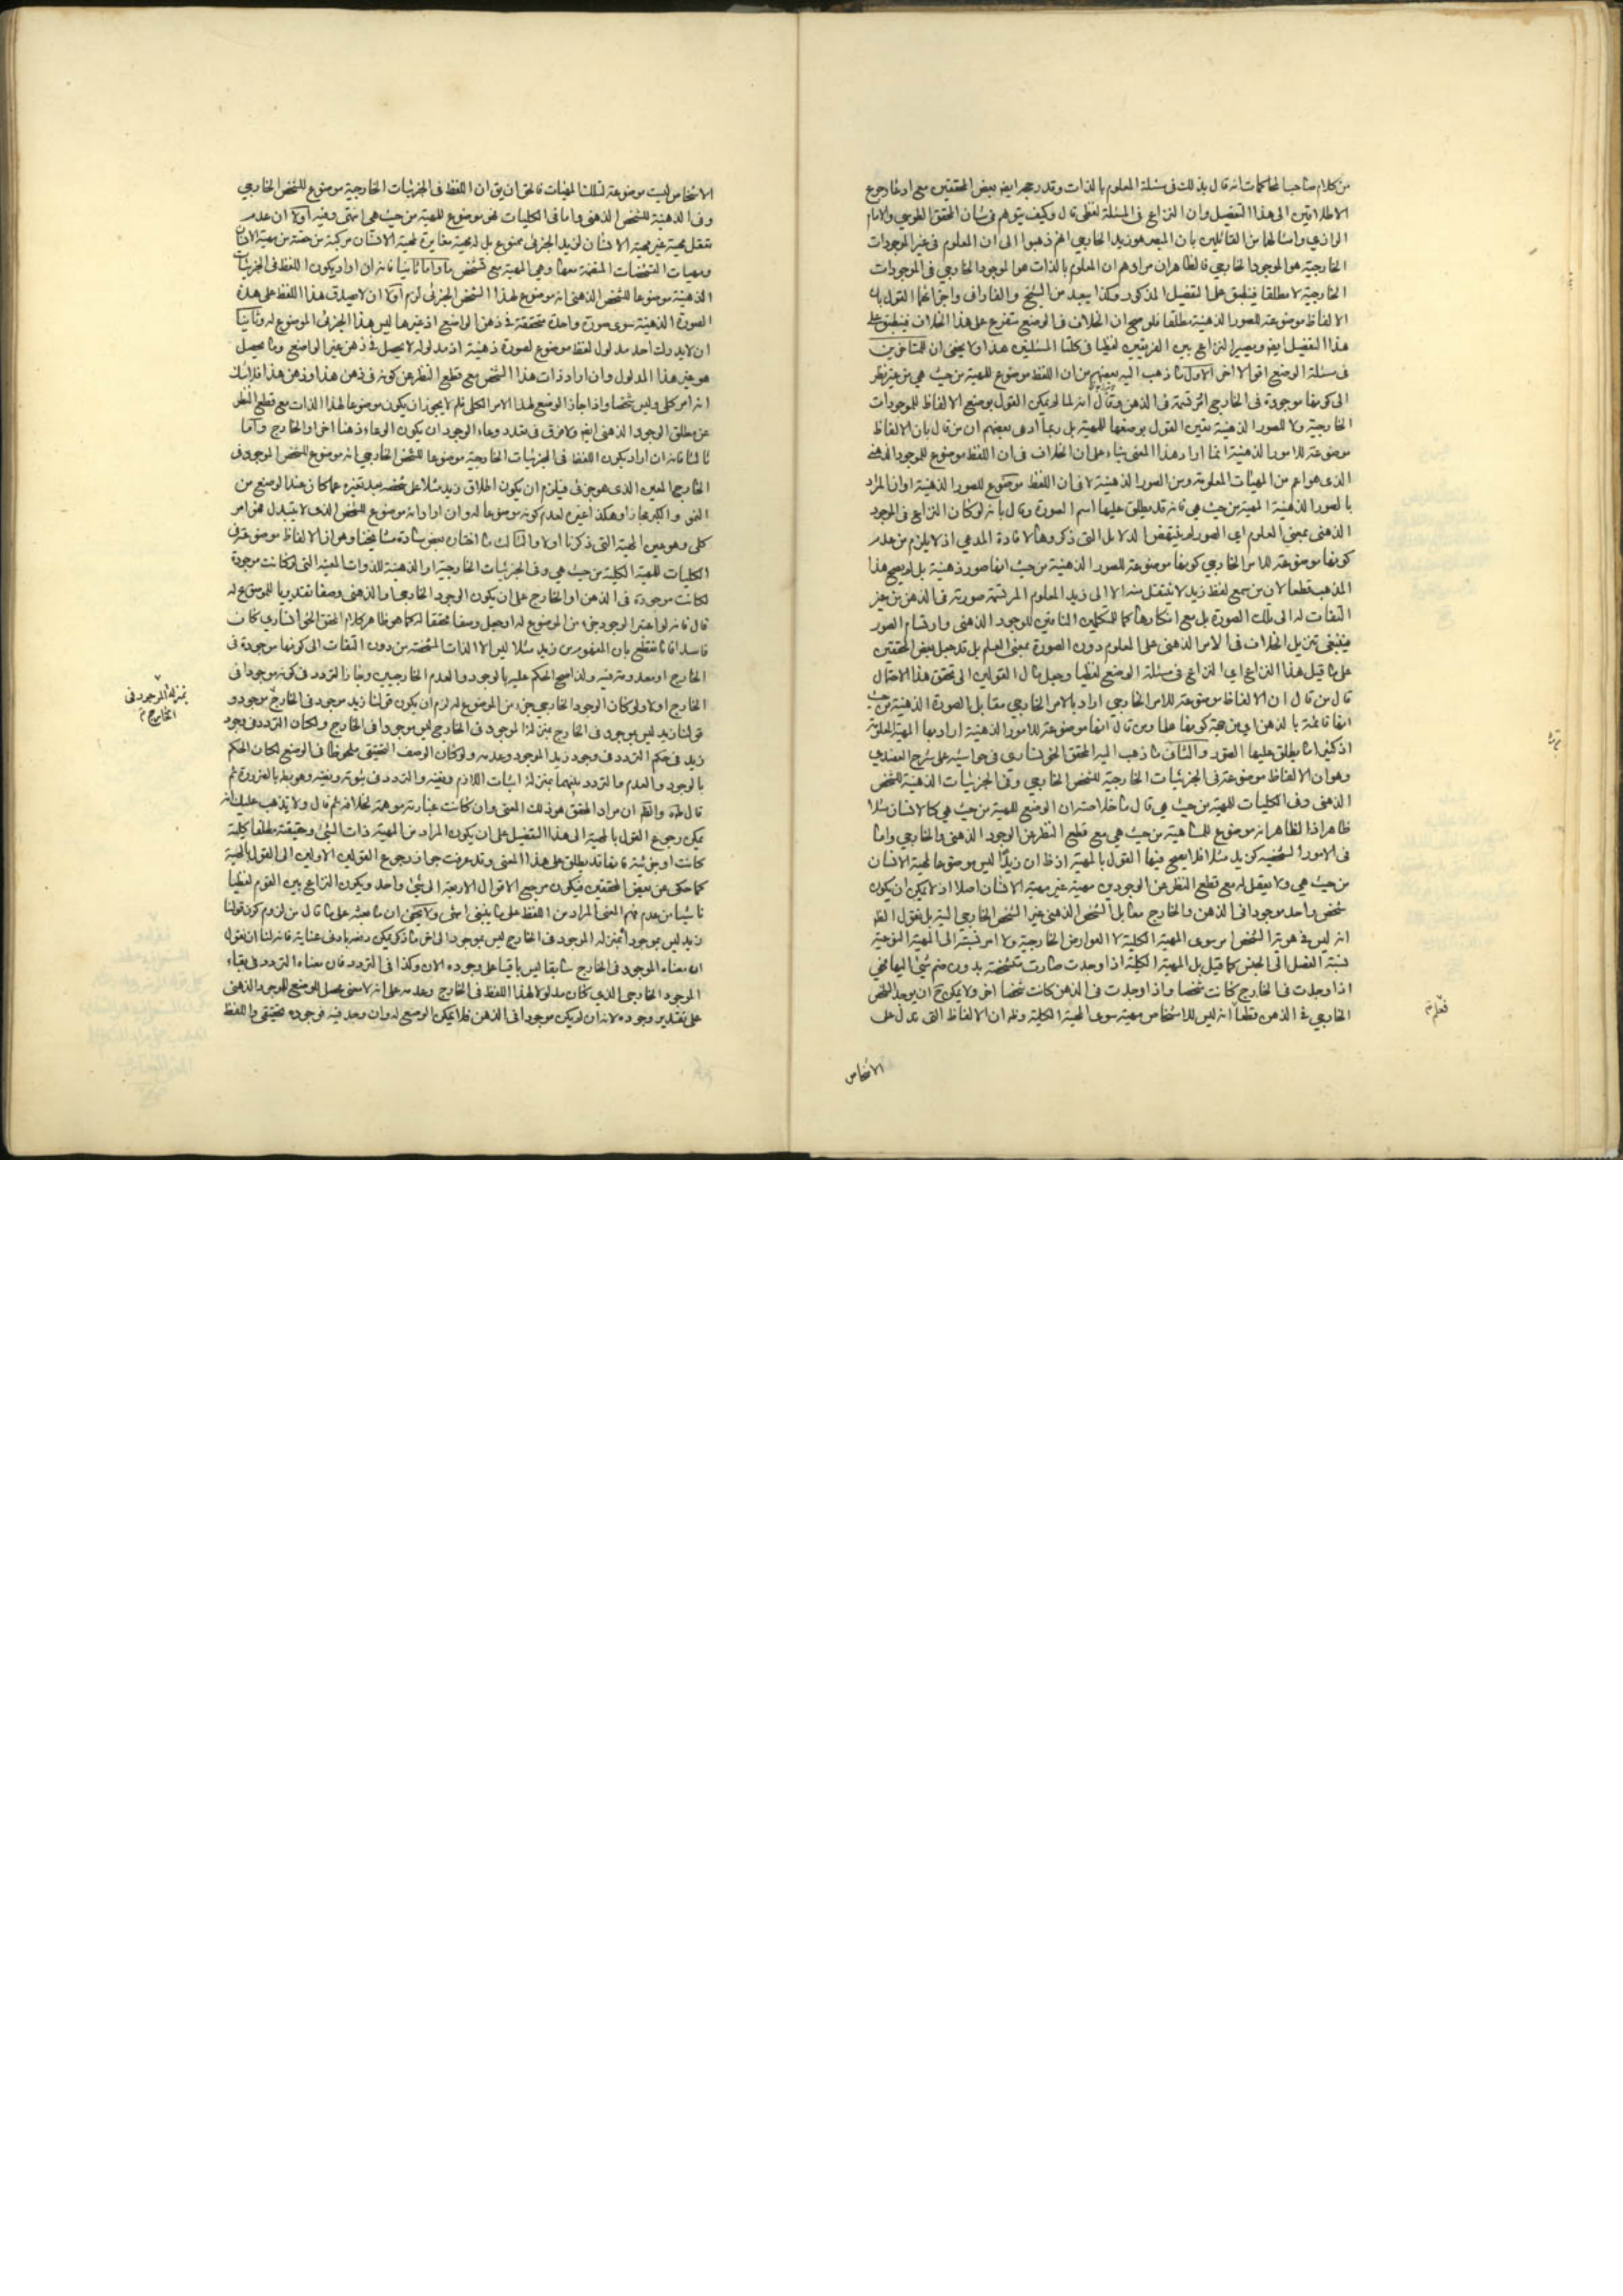 من كلام صاحب المحاكمات انه قال بذلك فى مسئلة المعلوم بالذات وقد رجحه ايضا بعض المحققين مع ادعاء رجوع
الاطلاقين الى هذا التفصيل وان النزاع فى المسئلة لفظى قال وكيف يتوهم فى شان المحقق الطوسي والامام
الرازي وامثالهما من القائلين بان المبصر هو زيد الخارجي انهم ذهبوا الى ان المعلوم فى غير الموجودات
الخارجية هو الموجود الخارجي فالظاهر ان مرادهم ان المعلوم بالذات هو الموجود الخارجي فى الموجودات
الخارجية لا مطلقا فينطبق على التفصيل المذكور وكذا يبعد من الشيخ والفارابى واحزابهما القول بان
الالفاظ موضوعة للصور الذهنية مطلقا فلو صح ان الخلاف فى الوضع متفرع على هذا الخلاف فينطبق على
هذا التفصيل ايضا ويصير النزاع بين الفريقين لفظيا فى كلتا المسئلتين هذا ولا يخفى ان للمتاخرين
فى مسئلة الوضع اقوالا اخر الاول ما ذهب اليه بعضهم من ان اللفظ موضوع للمهية من حيث هي من غير نظر
الى كونها موجودة فى الخارج او مرتسمة فى الذهن وقال انه لما لم يكن القول بوضع الالفاظ للموجودات
الخارجية ولا للصور الذهنية تعين القول بوضعها للمهية بل ربما ادعى بعضهم ان من قال بان الالفاظ
موضوعة للامور الذهنية انما اراد هذا المعنى بناء على ان الخلاف فى ان اللفظ موضوع للموجود الذهنى
الذى هو اعم من المهيات المعلومة ومن الصور الذهنية لا فى ان اللفظ موضوع للصور الذهنية او ان المراد
بالصور الذهنية المهية من حيث هي فانه قد يطلق عليها اسم الصورة وقال بانه لو كان النزاع فى الموجود
الذهنى بمعنى العلوم اي الصور لم ينتهض الدلائل التى ذكروها لافادة المدعى اذ لا يلزم من عدم
كونها موضوعة للامر الخارجي كونها موضوعة للصور الذهنية من حيث انها صور ذهنية بل لم يصح هذا
المذهب قطعا لان من سمع لفظ زيد لا ينتقل منه الا الى زيد المعلوم المرتسمة صورته فى الذهن من غير
التفات له الى تلك الصورة بل مع انكارها كما للمتكلمين النافين للوجود الذهنى وارتسام الصور
فينبغى تنزيل الخلاف فى الامر الذهنى على المعلوم دون الصورة بمعنى العلم بل قد جعل بعض المحققين
على ما قيل هذا النزاع اي النزاع فى مسئلة الوضع لفظيا وجعل مآل القولين الى تحقق هذا الاحتمال
قال من قال ان الالفاظ موضوعة للامر الخارجي اراد بالامر الخارجي مقابل الصورة الذهنية من حيث
انها قائمة بالذهن اي من جهة كونها علما ومن قال انها موضوعة للامور الذهنية اراد بها المهية المعلومة
اذ كثيرا ما يطلق عليها الصور والثانى ما ذهب اليه المحقق الخونسارى فى حواشيه على شرح العضدي
وهو ان الالفاظ موضوعة فى الجزئيات الخارجية للشخص الخارجي وفى الجزئيات الذهنية للشخص
الذهنى وفى الكليات للمهية من حيث هي قال ما خلاصته ان الوضع للمهية من حيث هي كالانسان مثلا
ظاهر اذ الظاهر انه موضوع للماهية من حيث هي مع قطع النظر عن الوجود الذهنى والخارجي واما
فى الامور الشخصية كزيد مثلا فلا يصح فيها القول بالمهية اذ ظ ان زيدا ليس موضوعا لمهية الانسان
من حيث هي ولا يعقل له مع قطع النظر عن الوجودين مهية غير مهية الانسان اصلا اذ لا يمكن ان يكون
شخص واحد موجودا فى الذهن والخارج معا بل الشخص الذهنى غير الشخص الخارجي البتة بل نقول الظ
انه ليس فى هوية الشخص امر سوى المهية الكلية لا العوارض الخارجية ولا امر نسبته الى المهية النوعية
نسبة الفصل الى الجنس كما قيل بل المهية الكلية اذا وجدت صارت مشخصة بدون ضم شيئ اليها فهي
اذا وجدت فى الخارج كانت شخصا واذا وجدت فى الذهن كانت شخصا اخر ولا يمكن ح ان يوجد الشخص
الخارجي فى الذهن قطعا انه ليس للاشخاص مهية سوى المهية الكلية وظ ان الالفاظ التى تدل على
فعلم
الاشخاص
الاشخاص ليست موضوعة لتلك المهيات فالحق ان يق ان اللفظ فى الجزئيات الخارجية موضوع للشخص الخارجي
وفى الذهنية للشخص الذهنى واما فى الكليات فهو موضوع للمهية من حيث هي انتهى وفيه اولا ان عدم
تعقل مهية غير مهية الانسان لزيد الجزئى ممنوع بل له مهية مغايرة لمهية الانسان مركبة من حصة من مهية الانسان
ومهيات التشخصات المنضمة معها وهي المهية مع تشخص ما واما ثانيا فانه ان اراد بكون اللفظ فى الجزئيات
الذهنية موضوعا للشخص الذهنى انه موضوع لهذا الشخص الجزئى لزم اولا ان لا يصدق هذا اللفظ على هذه
الصورة الذهنية سوى صورة واحدة متحققة فى ذهن الواضع اذ غيرها ليس هذا الجزئى الموضوع له وثانيا
ان لا يدرك احد مدلول لفظ موضوع لصورة ذهنية اذ مدلوله لا يحصل فى ذهن غير الواضع وما يحصل
هو غير هذا المدلول وان اراد ذات هذا الشخص مع قطع النظر عن كونه فى ذهن هذا وذهن هذا فلا شك
انه امر كلى وليس شخصا واذا جاز الوضع لهذا الامر الكلى فلم لا يجوز ان يكون موضوعا لهذا الذات مع قطع النظر
عن مطلق الوجود الذهنى ايضا ولا فرق فى تعدد وعاء الوجود ان يكون الوعاء ذهنا اخر او الخارج واما
ثالثا فانه ان اراد بكون اللفظ فى الجزئيات الخارجية موضوعا للشخص الخارجي انه موضوع للشخص الموجود فى
الخارج المعين الذى هو جزئى فيلزم ان يكون اطلاق زيد مثلا على شخصه بعد تغيره عما كان عند الوضع من
النمو والكبر مجازا وهكذا غيره لعدم كونه موضوعا له وان اراد انه موضوع للشخص الذى لا يتبدل فهو امر
كلى وهو عين المهية التى ذكرنا اولا والثالث ما اختاره بعض سادة مشايخنا وهو ان الالفاظ موضوعة فى
الكليات للمهية الكلية من حيث هي وفى الجزئيات الخارجية او الذهنية للذوات المعينة التى لو كانت موجودة
لكانت موجودة فى الذهن او الخارج على ان يكون الوجود الخارجي والذهنى وصفا تقديريا للموضوع له
قال فانه لو اعتبر الوجود جزء من الموضوع له او جعل وصفا محققا له كما هو ظاهر كلام المحقق الخوانسارى كان
فاسدا فانا نقطع بان المفهوم من زيد مثلا ليس الا الذات المشخصة من دون التفات الى كونها موجودة فى
الخارج او معدومة فيه ولذا صح الحكم عليه بالوجود والعدم الخارجيين وجاز التردد فى كونه موجودا فى
الخارج او لا ولو كان الوجود الخارجي جزء من الموضوع له لزم ان يكون قولنا زيد موجود فى الخارج موجود و
قولنا زيد ليس بموجود فى الخارج بمنزلة الموجود فى الخارج ليس موجودا فى الخارج ولكان التردد فى وجود
بمنزلة الموجود فى
الخارج
زيد فى حكم التردد فى وجود زيد الموجود وعدمه ولو كان الوصف الحقيقى ملحوظا فى الوضع لكان الحكم
بالوجود والعدم والتردد بينهما بمنزلة اثبات اللازم ونفيه والتردد فى ثبوته ونفيه وهو بط بالضرورة ثم
قال طه والظ ان مراد المحقق هو ذلك المعنى وان كانت عبارته موهمة لخلافه ثم قال ولا يذهب عليك انه
يمكن رجوع القول بالمهية الى هذا التفصيل على ان يكون المراد من المهية ذات الشيئ وحقيقته مطلقا كلية
كانت او جزئية فانها قد يطلق على هذا المعنى وقد عرفت جواز رجوع القولين الاولين الى القول بالمهية
كما حكى عن بعض المحققين فيكون مرجع الاقوال الاربعة الى شيئ واحد ويكون النزاع بين القوم لفظيا
ناشئا من عدم فهم المعنى المراد من اللفظ على ما ينبغى انتهى ولا يخفى ان ما نسبه على ما قال من لزوم كون قولنا
زيد ليس بموجود بمنزلة الموجود فى الخارج ليس بموجود الى اخر ما ذكر يمكن دفعه بادنى عناية فانه لنا ان نقول
ان معناه الموجود فى الخارج سابقا ليس باقيا على وجوده الان وكذا فى التردد فان معناه التردد فى بقاء
الموجود الخارجي الذي كان مدلولا لهذا اللفظ فى الخارج وعدمه على انه لا معنى محصل للوضع للموجود الذهنى
على تقدير وجوده لانه ان لم يكن موجودا فى الذهن فلا يمكن الوضع له وان وجد فيه فوجوده حقيقى واللفظ